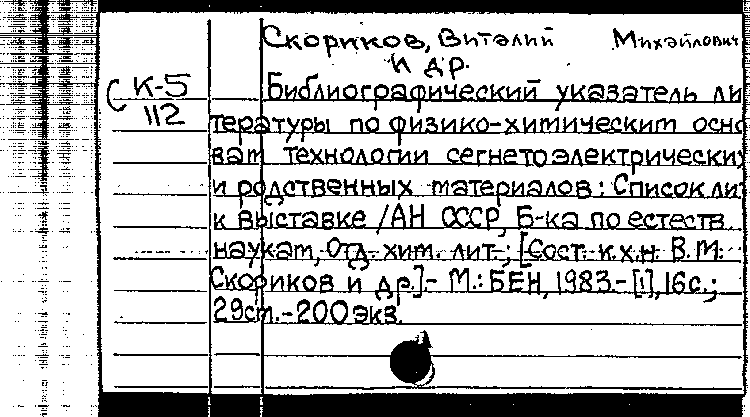 Скориков, Виталий Михайлович
и др.
С К-5
112
Библиографический указатель ли
тературы по физико-химическим осно
вам технологии сегнетоэлектрических
и родственных материалов: Список лит
к выставке /АН СССР, Б-ка по естеств.
наукам, Отд. хим. лит.; [Сост. к.х.н. В.М.
Скориков и др.]- М.: БЕН, 1983.- [1], 16с.;
29см.-200экз.